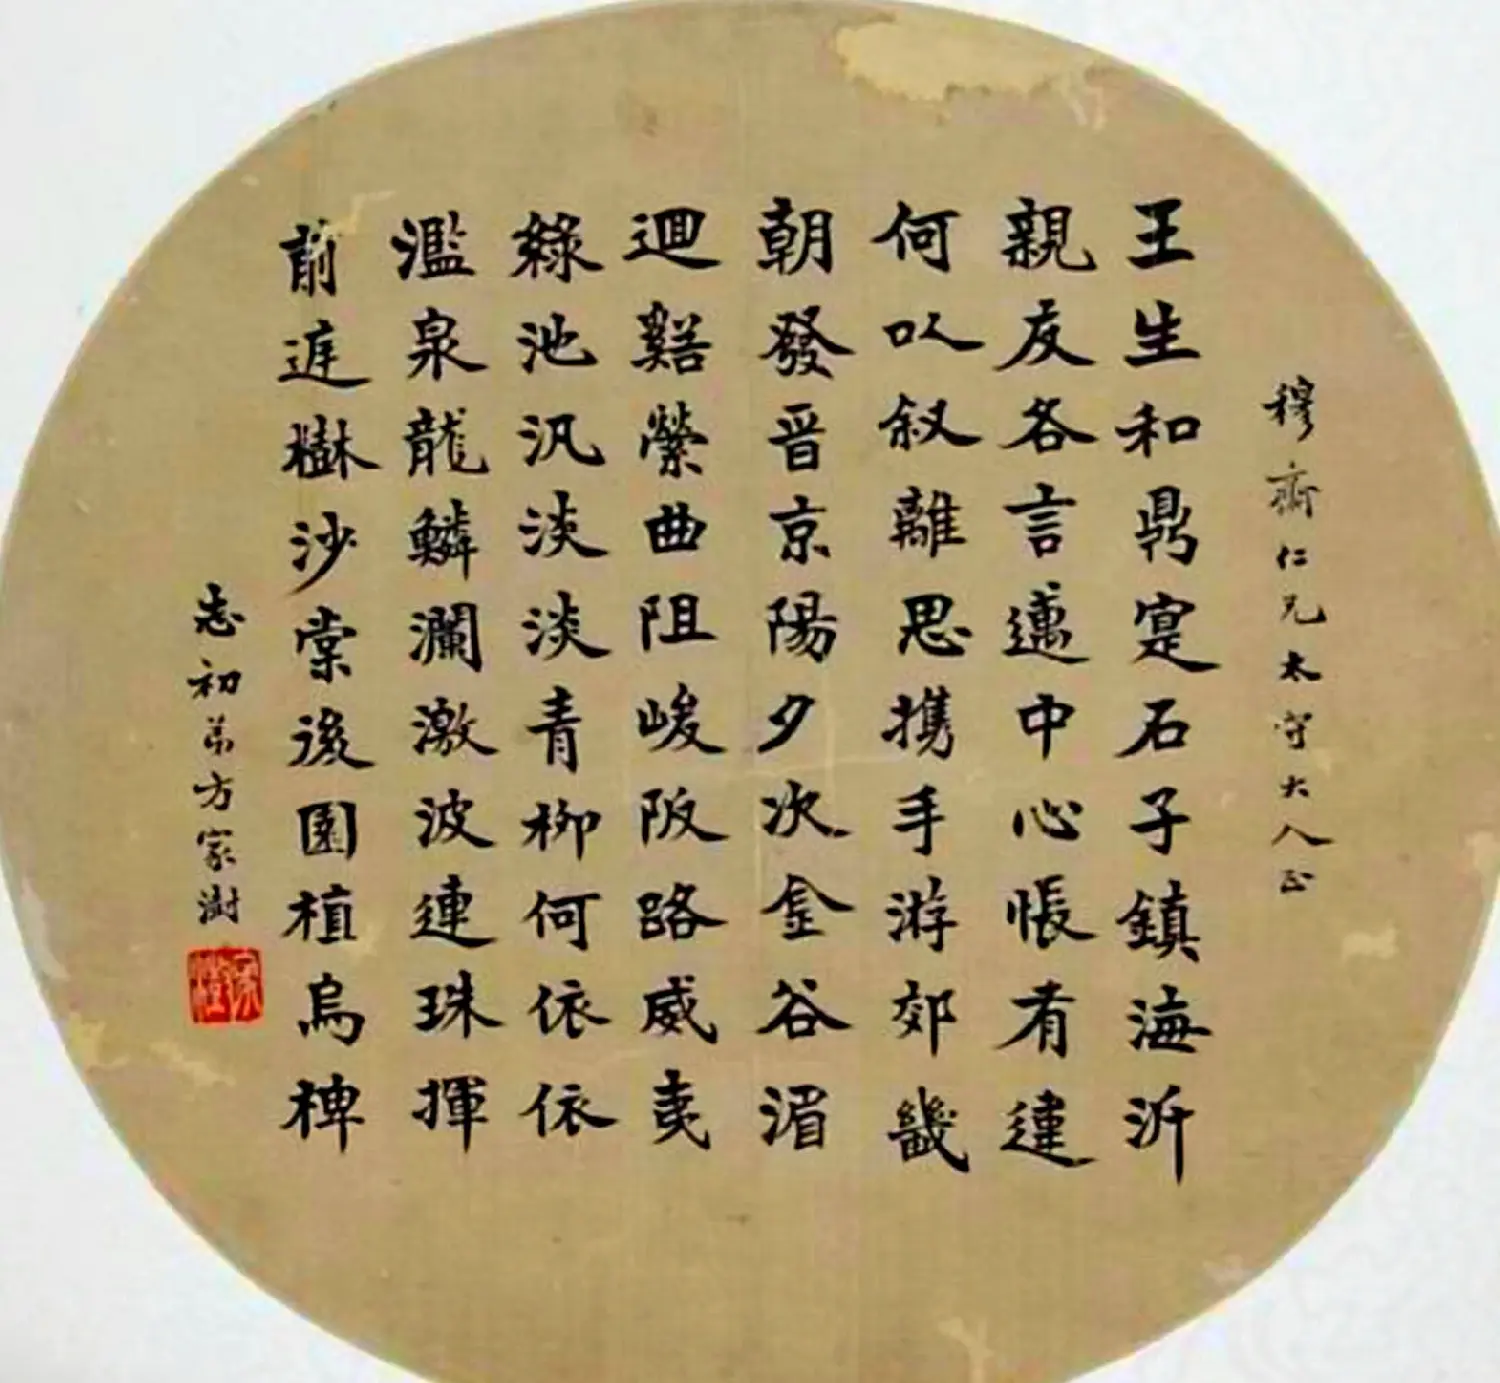 穆齋仁兄太守大人正
王生和鼎寔石子鎮海沂
親友各言邁中心悵有違
何以叙離思攜手游郊畿
朝發晉京陽夕次金谷湄
迴谿縈曲阻峻阪路威夷
綠池汎淡淡青柳何依依
濫泉龍鱗瀾激波連珠揮
前庭樹沙棠後園植烏椑
志初弟方家澍
家澍